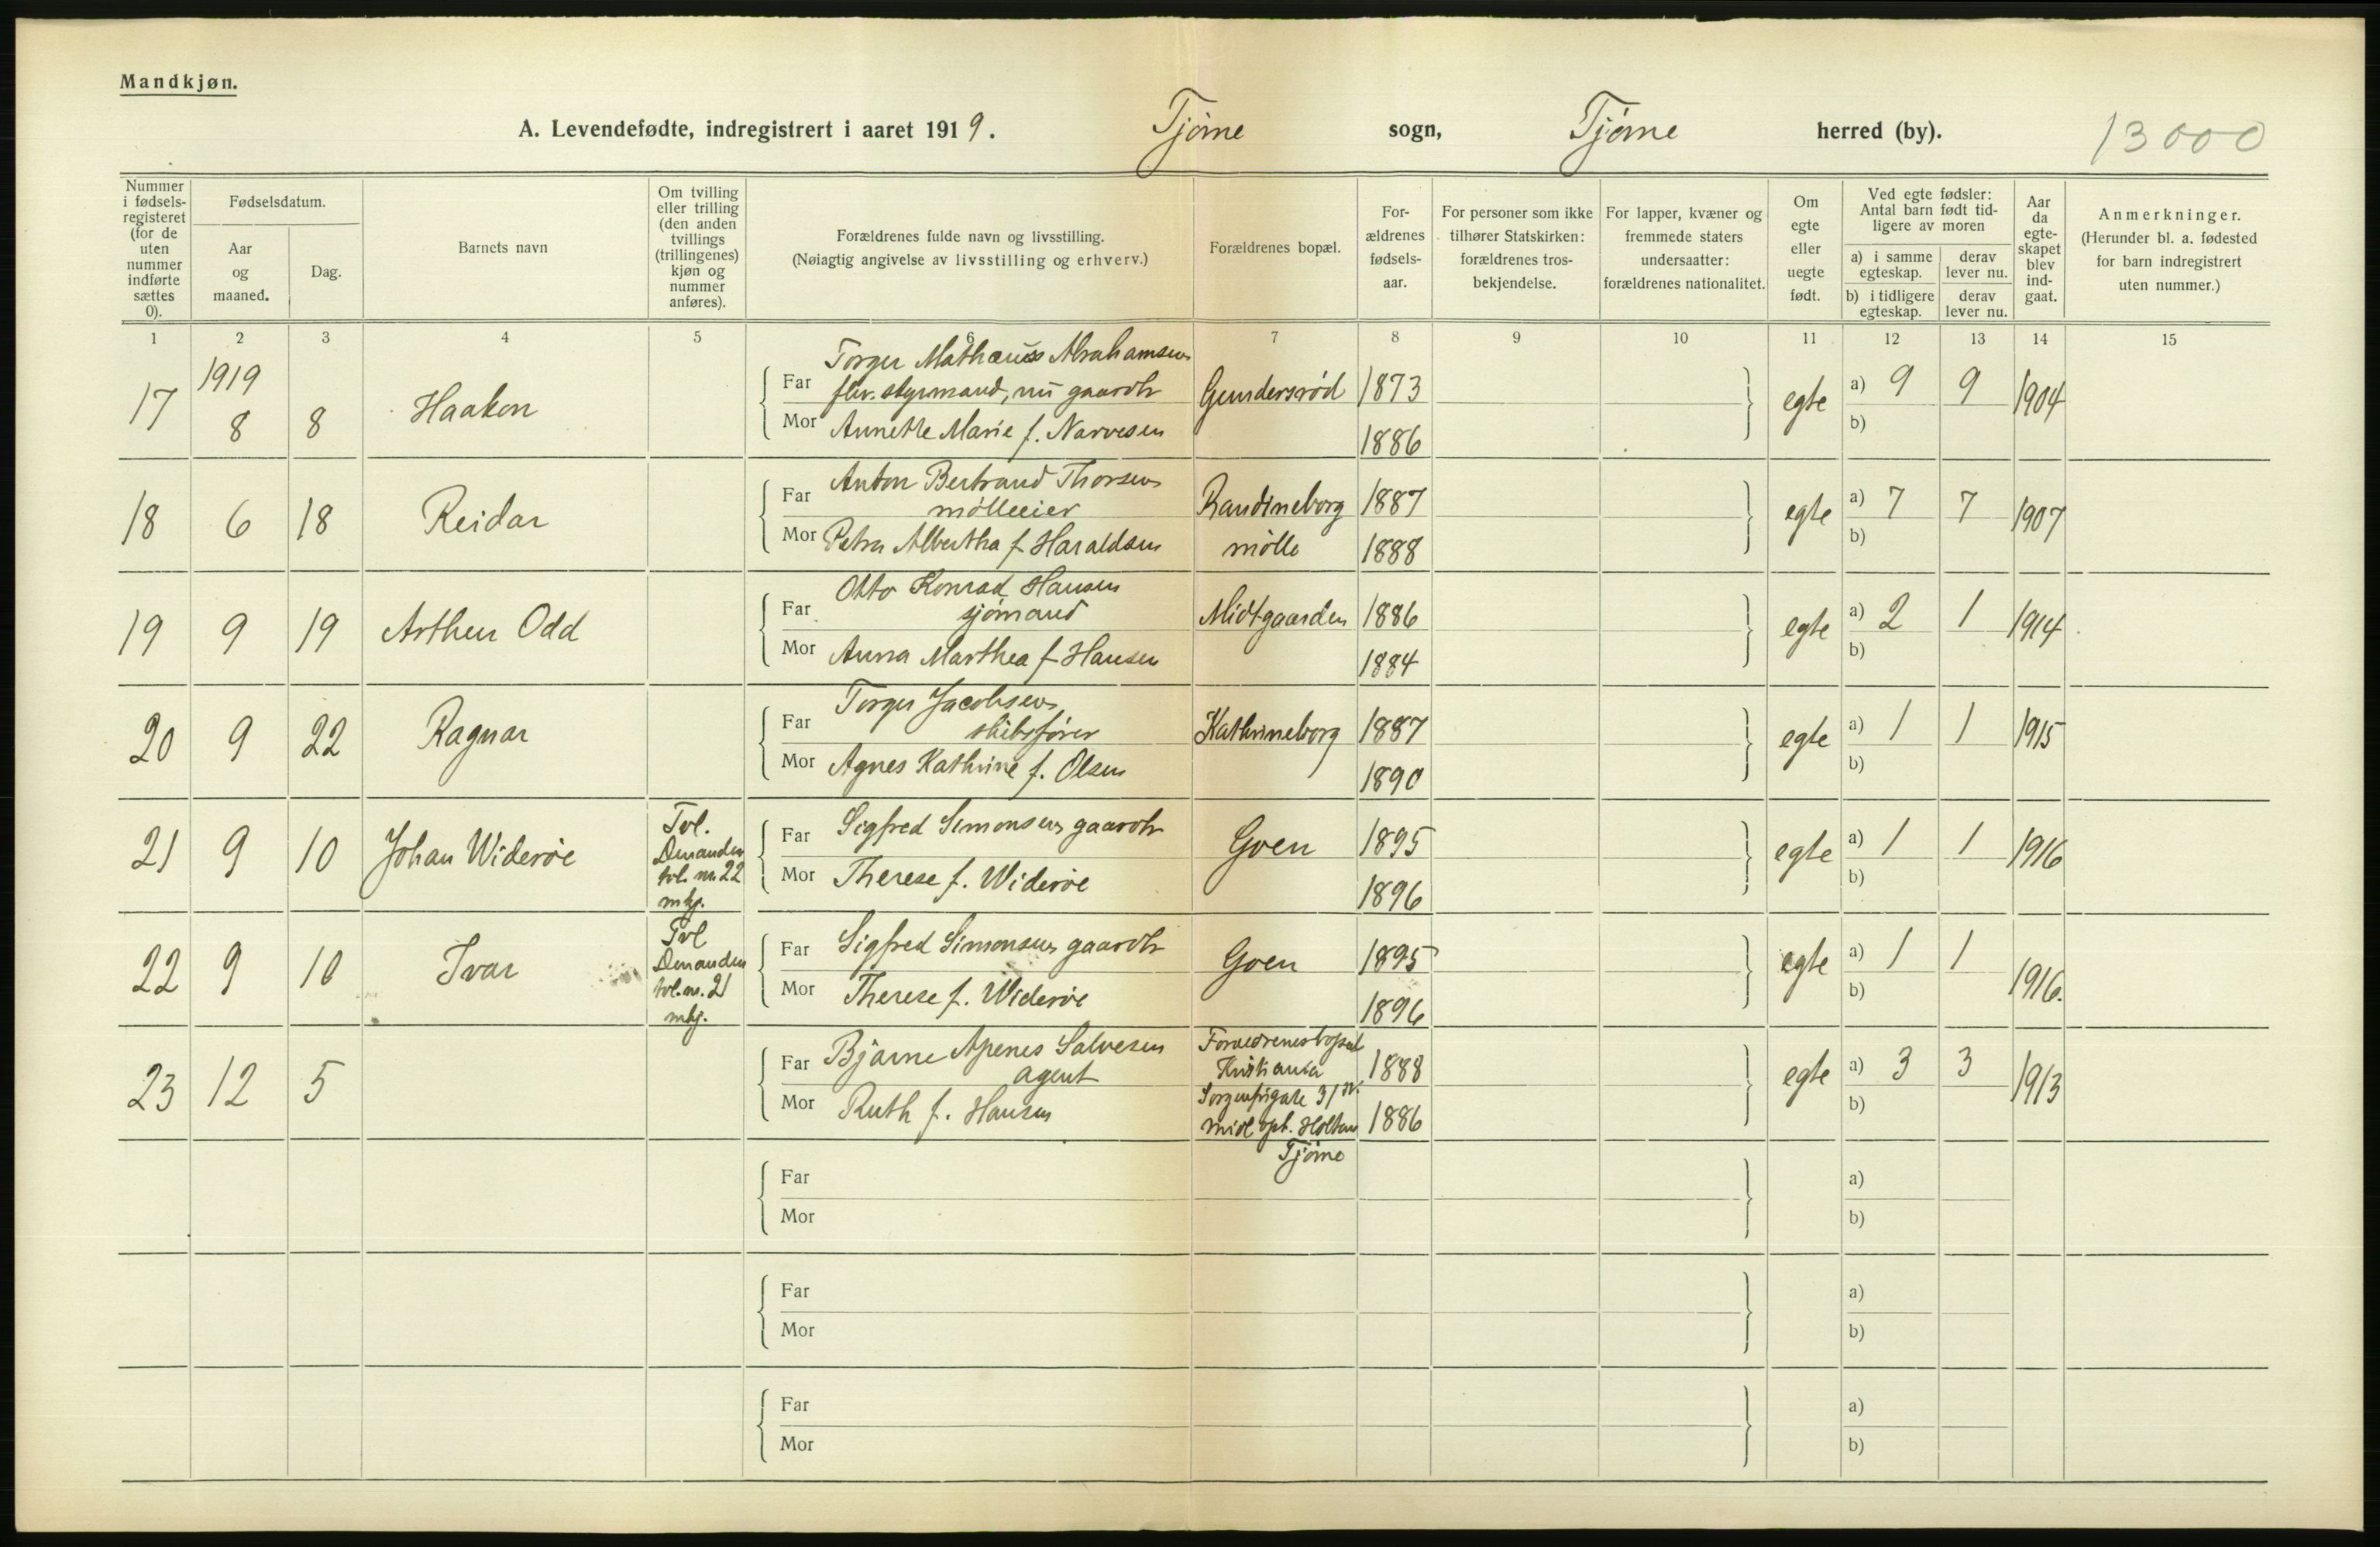 Mandkjøn.
A. Levendefødte, indregistrert i aaret 1919. Tjøme sogn, Tjøme herred (by). 13000
Nummer i fødselsregisteret (for de uten nummer indførte sættes 0).
Fødselsdatum.
Aar og maaned.
Dag.
Barnets navn
Om tvilling eller trilling (den anden tvillings (trillingenes) kjøn og nummer anføres).
Forældrenes fulde navn og livsstilling.
(Nøiagtig angivelse av livsstilling og erhverv.)
Forældrenes bopæl.
Forældrenes fødselsaar.
For personer som ikke tilhører Statskirken: forældrenes trosbekjendelse.
For lapper, kvæner og fremmede staters undersaatter: forældrenes nationalitet.
Om egte eller uegte født.
Ved egte fødsler: Antal barn født tidligere av moren
a) i samme egteskap. derav lever nu.
b) i tidligere egteskap. derav lever nu.
Aar da egteskapet blev indgaat.
Anmerkninger.
(Herunder bl. a. fødested for barn indregistrert uten nummer.)
1 2 3 4 5 6 7 8 9 10 11 12 13 14 15
17 1919 8 8 Haakon
Far Torger Mathæuss Abrahamsen
fhv. styrmand, nu gaardbr
Mor Annette Marie f. Narvesen
Gundersrød 1873 1886 egte a) 9 9 b) 1904
18 6 18 Reidar
Far Anton Bertrand Thorsen
mølleeier
Mor Petra Albertha f. Haraldsen
Randineborg mølle 1887 1888 egte a) 7 7 b) 1907
19 9 19 Arthur Odd
Far Otto Konrad Hansen
sjømand
Mor Anna Marthea f. Hansen
Midtgaarden 1886 1884 egte a) 2 1 b) 1914
20 9 22 Ragnar
Far Torger Jacobsen
skibsfører
Mor Agnes Kathrine f. Olsen
Kathrineborg 1887 1890 egte a) 1 1 b) 1915
21 9 10 Johan Widerøe
Tvl. Den anden tvl. nr. 22 mkj.
Far Sigfred Simonsen gaardbr
Mor Therese f. Widerøe
Goen 1895 1896 egte a) 1 1 b) 1916
22 9 10 Ivar
Tvl Den anden tvl. nr. 21 mkj.
Far Sigfred Simonsen gaardbr
Mor Therese f. Widerøe
Goen 1895 1896 egte a) 1 1 b) 1916.
23 12 5
Far Bjarne Apenes Salvesen
agent
Mor Ruth f. Hansen
Forældrenes bopæl
Kristiania
Sorgenfrigate 31
midl opb. Holtan
Tjømø
1888 1886 egte a) 3 3 b) 1913
Far
Mor
a)
b)
Far
Mor
a)
b)
Far
Mor
a)
b)